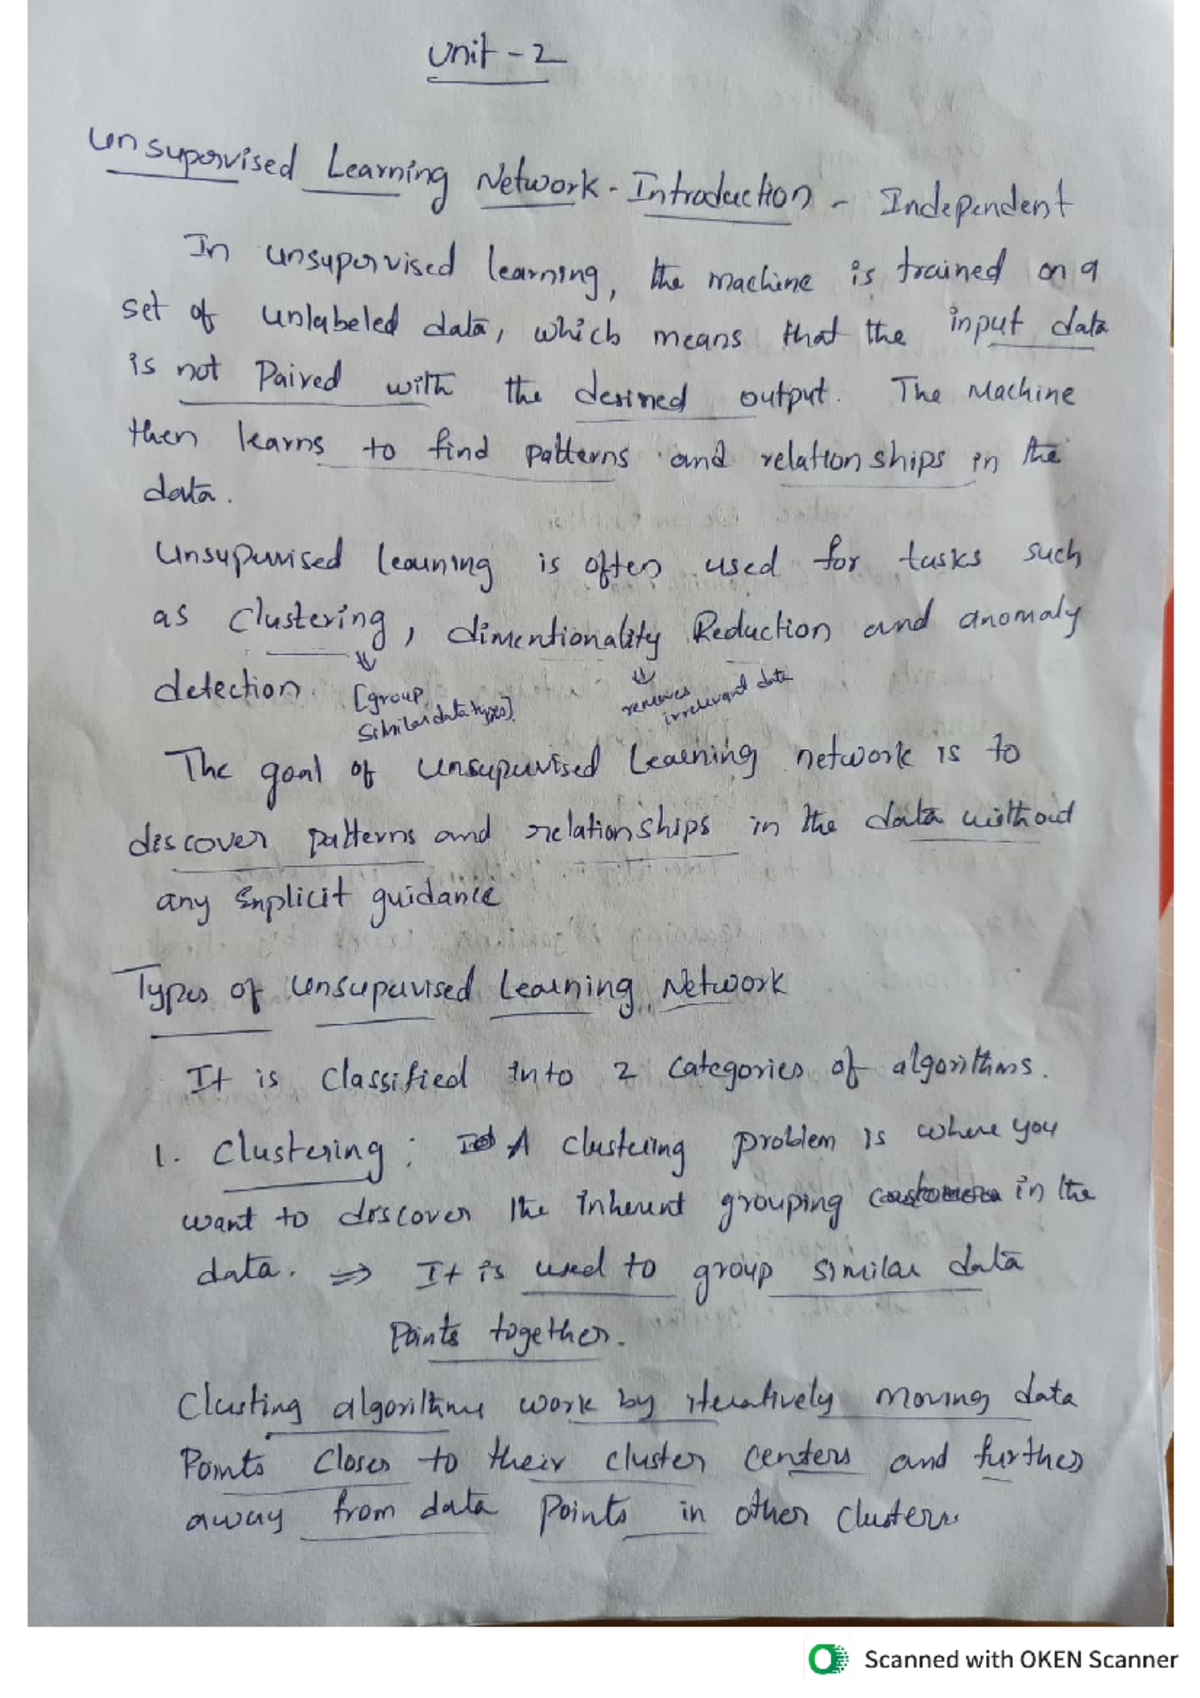 Unit - 2
Unsupervised Learning Network - Introduction - Independent
In unsupervised learning, the machine is trained on a
set of unlabeled data, which means that the input data
is not Paired with the desired output. The Machine
then learns to find patterns and relationships in the
data.
Unsupervised learning is often used for tasks such
as Clustering, dimentionality Reduction and anomaly
detection. [group
Similar data types]
removes
irrelevant data
The goal of unsupervised Learning network is to
discover patterns and relationships in the data without
any Explicit guidance
Types of Unsupervised Learning Network
It is Classified into 2 Categories of algorithms.
1. Clustering : A Clustering problem is where you
want to discover the inherent grouping in the
data. ⇒ It is used to group similar data
Points together.
Clusting algorithms work by iteratively moving data
Points Closer to their cluster centers and further
away from data points in other clusters.
Scanned with OKEN Scanner